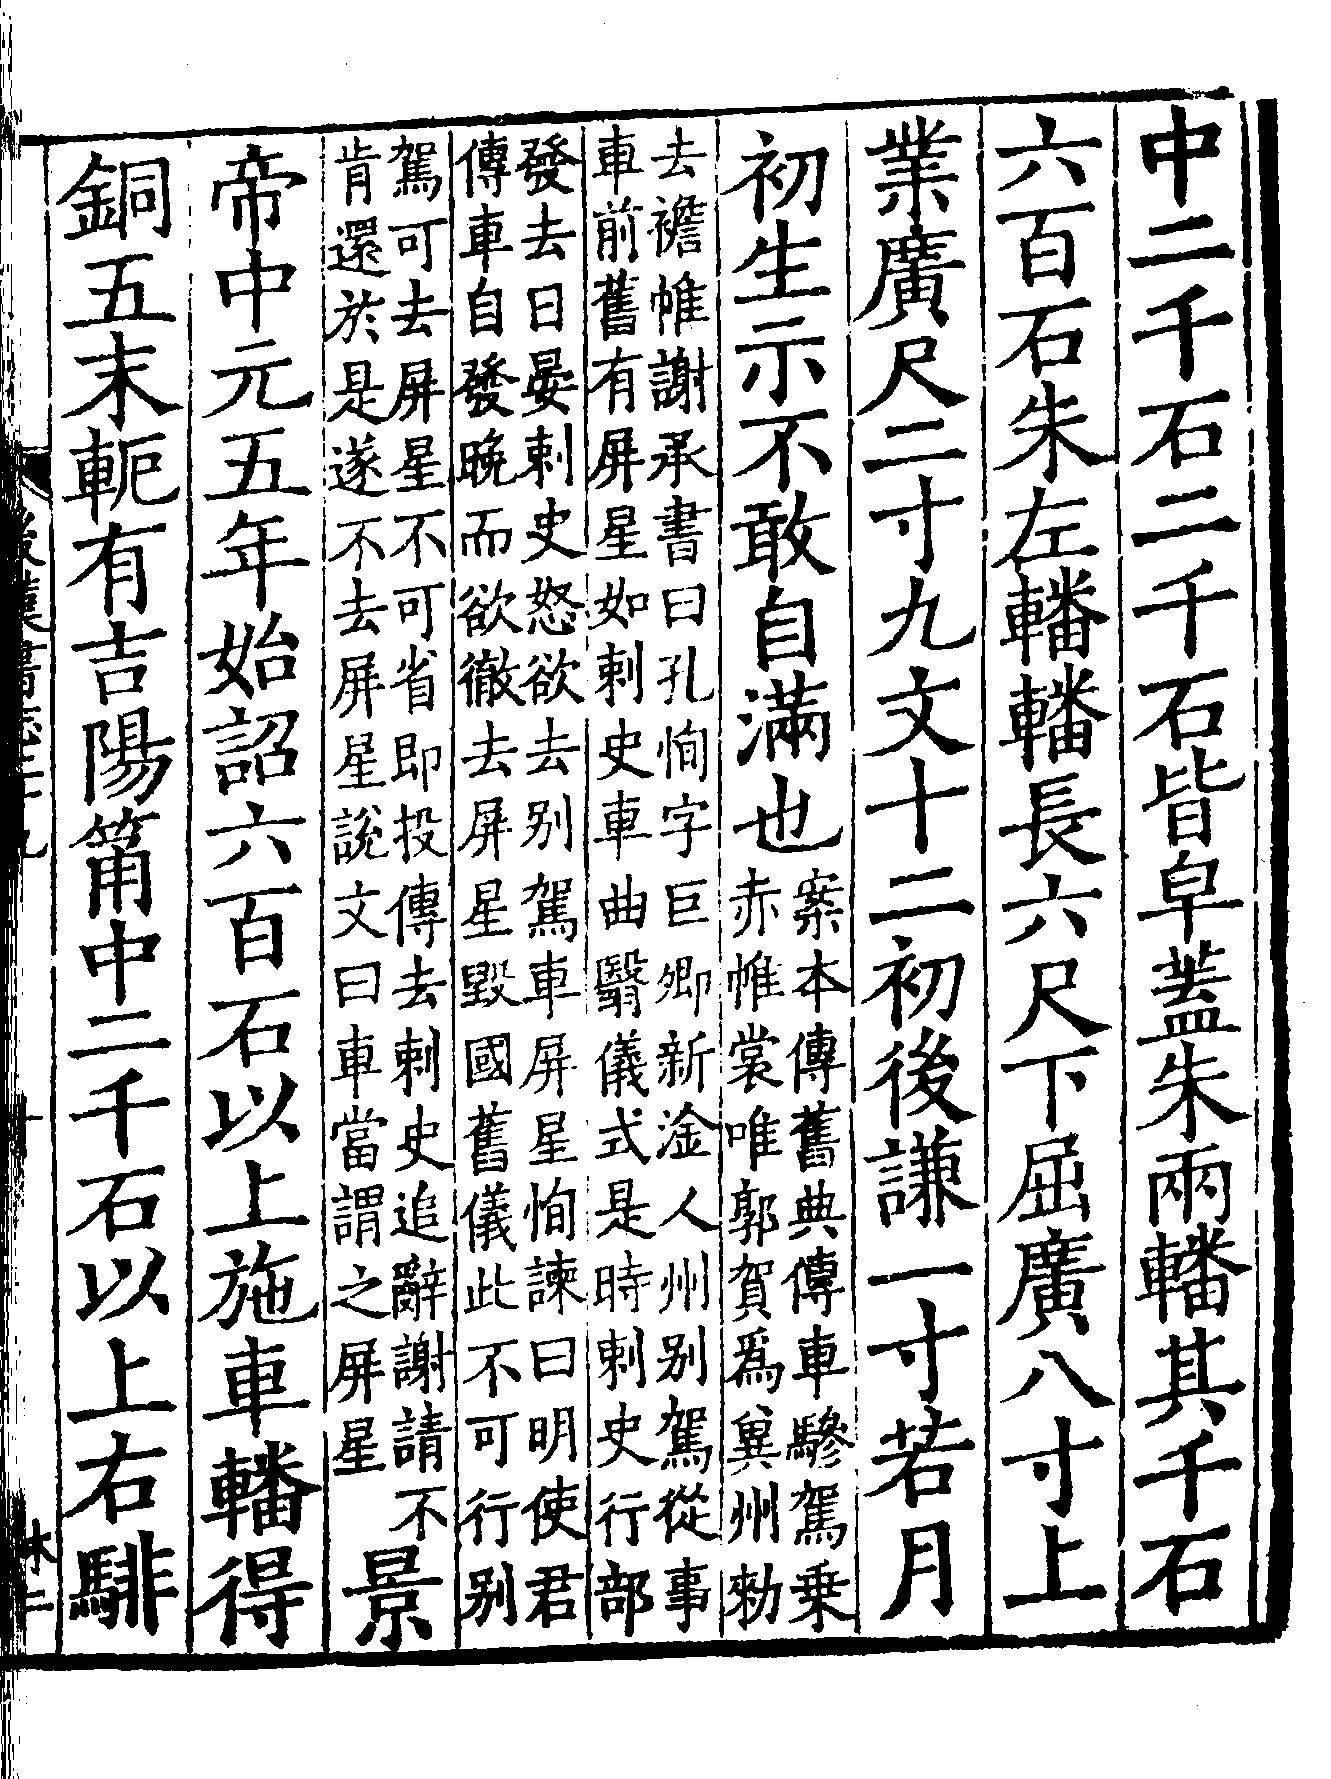 中二千石二千石皆皁蓋朱兩轓其千石
六百石朱左轓轓長六尺下屈廣八寸上
業廣尺二寸九文十二初後謙一寸若月
初生示不敢自滿也案本傳舊典傳車驂駕乗
赤帷裳唯郭賀爲兾州勑
去襜帷謝承書曰孔恂字巨卿新淦人州别駕從事
車前舊有屏星如刺史車曲翳儀式是時刺史行部
發去日晏刺史怒欲去别駕車屏星恂諫曰明使君
傳車自發晚而欲徹去屏星毀國舊儀此不可行别
駕可去屏星不可省即投傳去刺史追辭謝請不
肯還於是遂不去屏星説文曰車當謂之屏星
景
帝中元五年始詔六百石以上施車轓得
銅五末軛有吉陽筩中二千石以上右騑